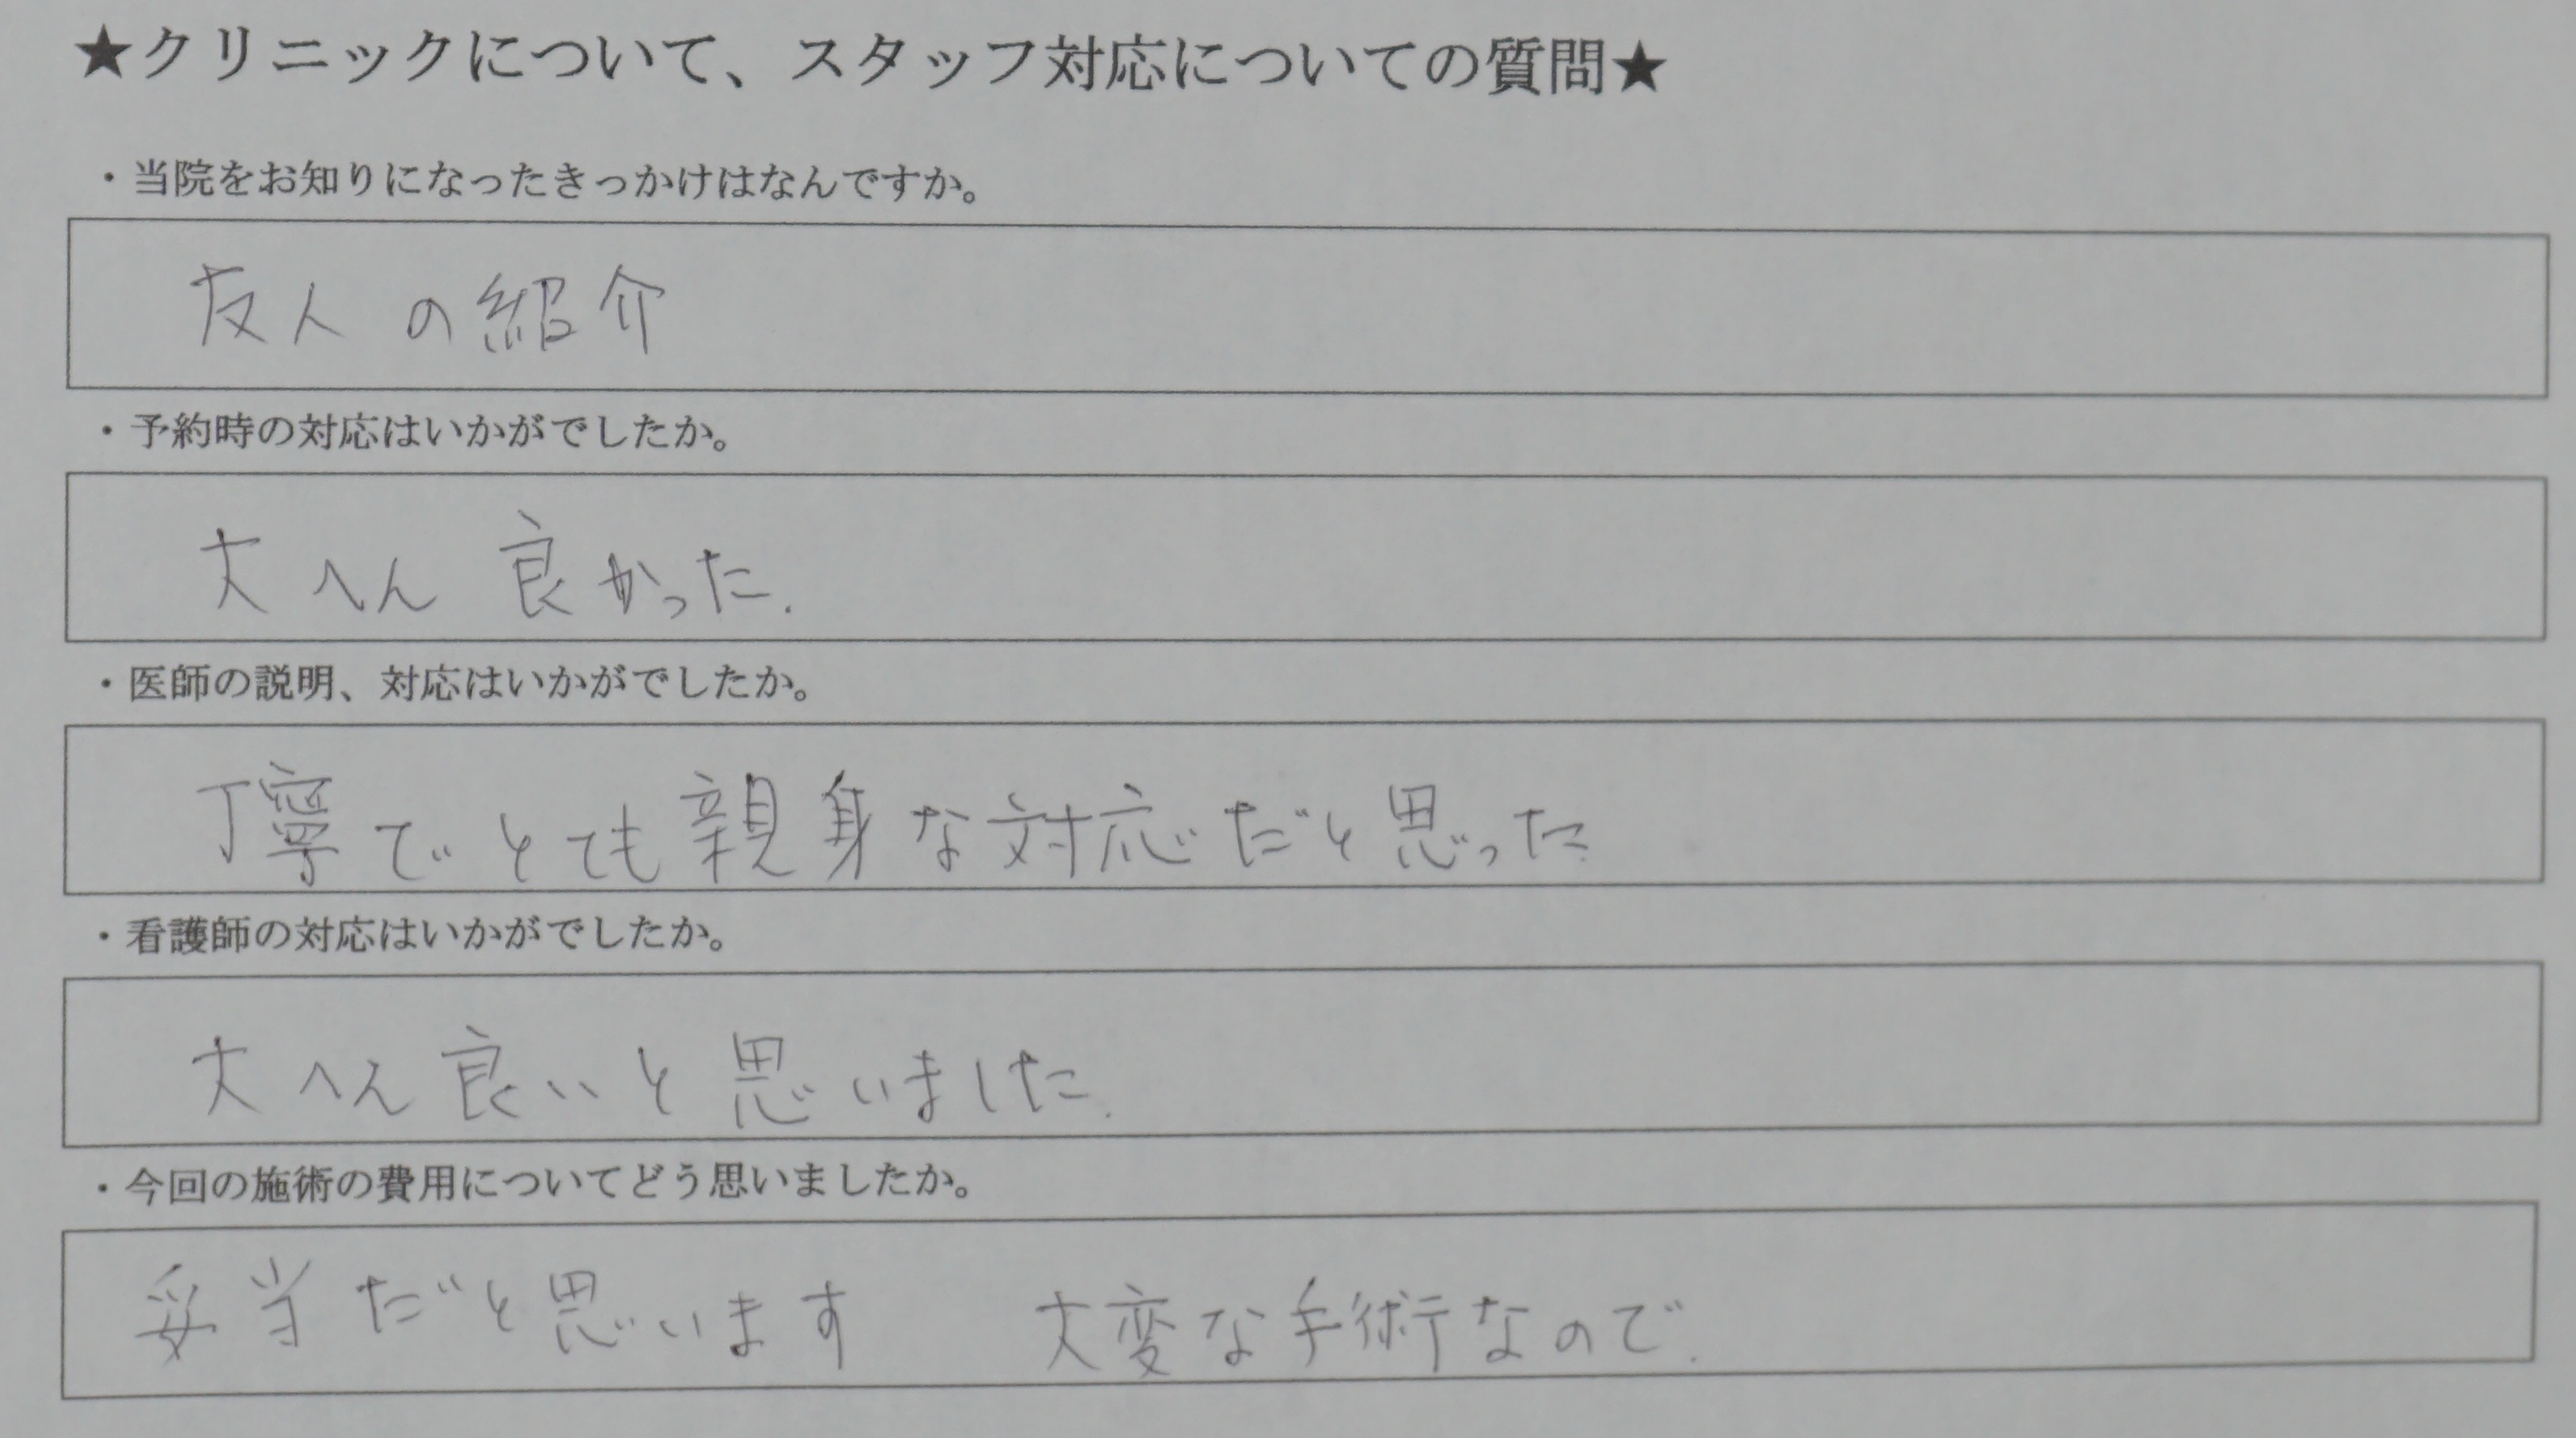 ★クリニックについて、スタッフ対応についての質問★
・当院をお知りになったきっかけはなんですか。
友人の紹介
・予約時の対応はいかがでしたか。
大へん良かった.
・医師の説明、対応はいかがでしたか。
丁寧でとても親身な対応だと思った.
・看護師の対応はいかがでしたか。
大へん良いと思いました.
・今回の施術の費用についてどう思いましたか。
妥当だと思います　大変な手術なので.